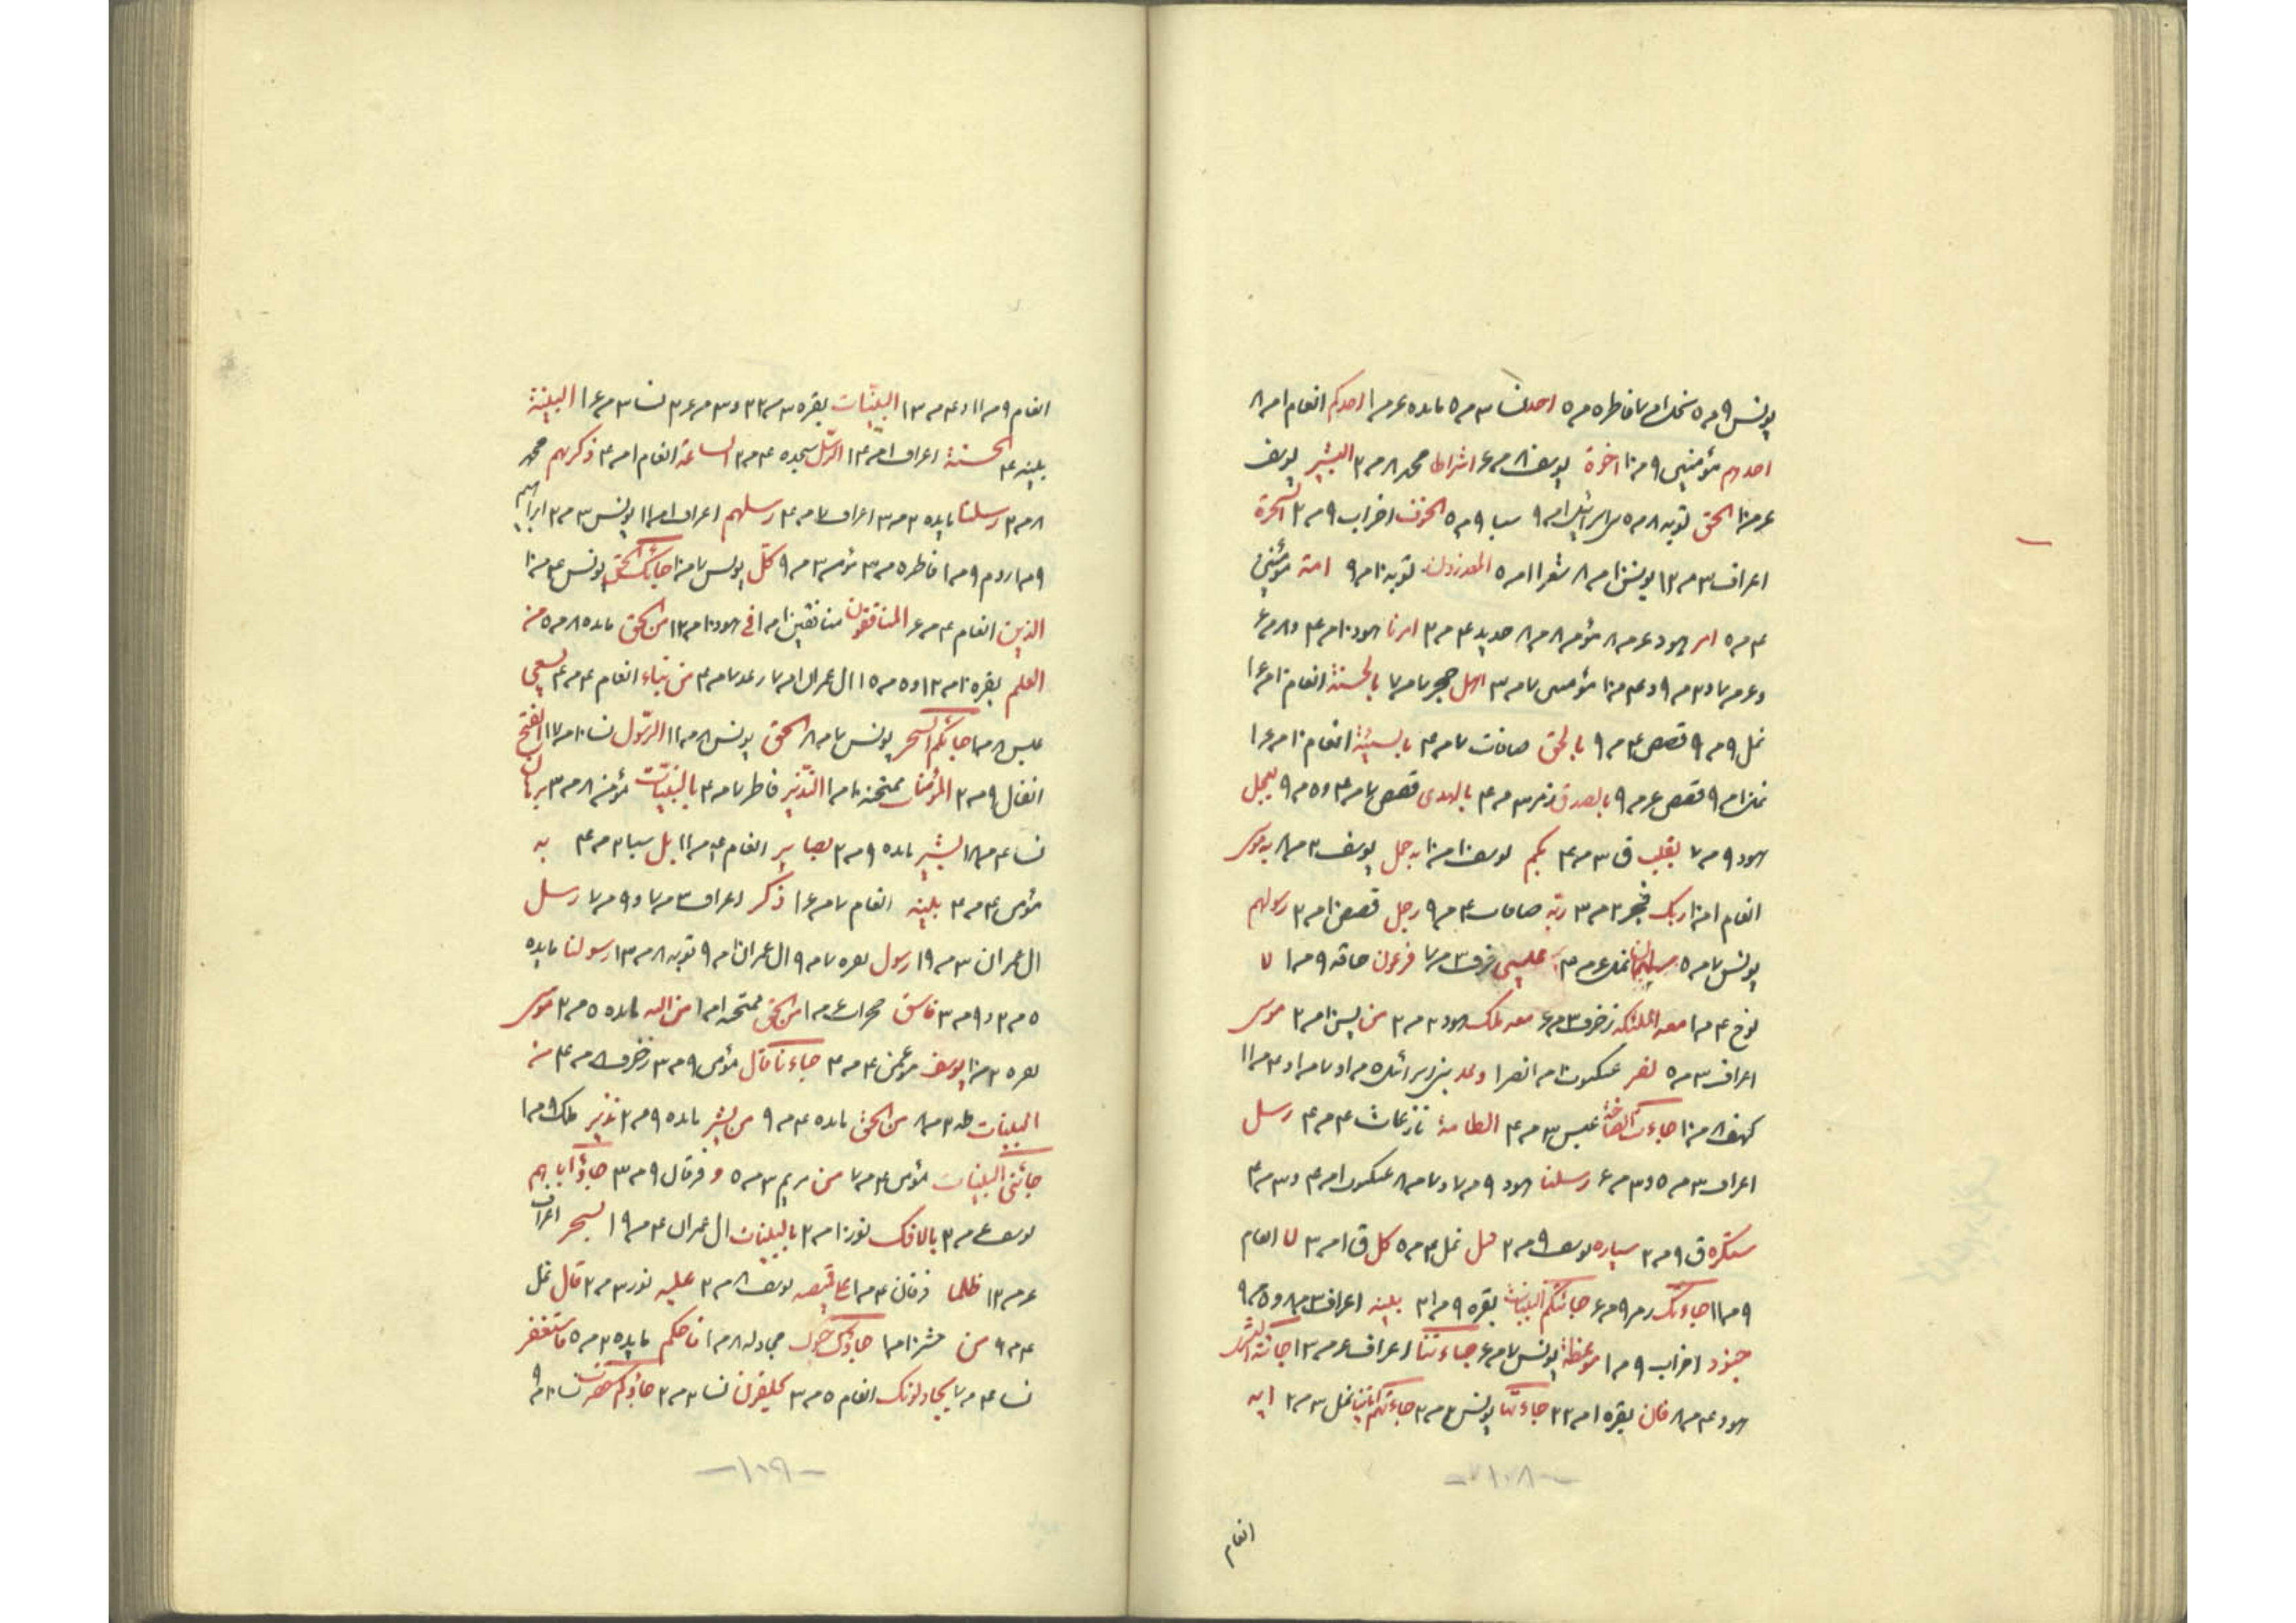 یونس ۹ مر ۵ نحل ۱ مر ۷ فاطر ۵ مر ۵ احد نسا ۳ مر ۵ مایده ۶ مر ۱ احدکم انعام ۱ مر ۸
احدهم مؤمنین ۹ مر ۱۰ اخوة یوسف ۸ مر ۶ اشراط محمد ۸ مر ۲ البشیر یوسف
الحق توبه ۸ مر ۵ اسرائیل ۱ مر ۹ سبا ۹ مر ۵ الخوف احزاب ۹ مر ۲ السحرة
اعراف ۳ مر ۱۲ یونس ۱۰ مر ۸ شعرا ۱ مر ۵ المعذرون توبه ۱۰ مر ۹ امة مؤمنین
۴ مر ۵ امر هود ۶ مر ۸ مؤمن ۸ مر ۸ حدید ۴ مر ۲ امرنا هود ۱۰ مر ۴ و ۸ مر ۶
و ۶ مر ۷ و ۳ مر ۹ و ۴ مر ۱۰ مؤمنین ۷ مر ۳ اهل حجر ۷ مر ۷ بالحسنة انعام
نمل ۹ مر ۹ قصص ۴ مر ۹ بالحق صافات ۷ مر ۴ بالسیئة انعام
قصص ۶ مر ۹ بالصدق زمر ۳ مر ۴ بالهدی قصص ۷ مر ۴ و ۵ مر ۹ بعجل
هود ۹ مر ۷ بقلب ق ۳ مر ۴ بکم یوسف ۱۰ مر ۱۰ به حمل یوسف ۲ مر ۸ به موسی
انعام ۱ مر ۱۰ ربک فجر ۲ مر ۳ ربه صافات ۴ مر ۹ رجل قصص ۱۰ مر ۲ رسولهم
یونس ۷ مر ۵ سلیمان نمل ۶ مر ۳ عیسی زخرف ۳ مر ۷ فرعون حاقه ۹ مر ۱ لا
نوح ۴ مر ۱ معه الملئکه زخرف ۳ مر ۶ معه ملک هود ۲ مر ۲ من یس ۱۰ مر ۲ موسی
اعراف ۳ مر ۵ نصر عنکبوت ۱۰ مر ۱ نصرا وعد بنی اسرائیل ۵ مر ۱ و ۷ مر ۱ و ۳ مر ۱۱
کهف ۸ مر ۱۰ جاءت الصاخة عبس ۳ مر ۴ الطامة نازعات ۴ مر ۴ رسل
اعراف ۳ مر ۵ و ۳ مر ۶ رسلنا هود ۹ مر ۷ و ۷ مر ۸ عنکبوت ۱ مر ۴ و ۳ مر ۴
سکرة ق ۹ مر ۲ سیاره یوسف ۹ مر ۲ قیل نمل ۴ مر ۵ کل ق ۱ مر ۳ لا انعام
۹ مر ۱۱ جاءتک زمر ۹ مر ۶ جائتکم البینات بقره ۹ مر ۲۱ بینه اعراف
جنود احزاب ۹ مر ۱ موعظة یونس ۷ مر ۶ جاءتنا اعراف ۶ مر ۱۲ جائته البشری
هود ۴ مر ۸ فان بقره ۱ مر ۲۲ جاءتنا یونس جاءتهم ایتنا نمل ۳ مر ۲ ایه
-۱۰۸-
انعام
انعام ۹ مر ۱۱ و ۴ مر ۱۲ البینات بقره ۳ مر ۲۲ و ۳ مر ۲۴ نسا ۳ مر ۱۶ البینة
بینه ۴ الحسنة اعراف ۱ مر ۱۴ الرسل سجده ۴ مر ۲ الساعة انعام ۱ مر ۴ ذکریهم محمد
۸ مر ۲ رسلنا مایده ۳ مر ۳ اعراف ۷ مر ۴ رسلهم اعراف ۱ مر ۱۱ یونس ۳ مر ۲ ابراهیم
۹ مر ۱ روم ۹ مر ۱ فاطر ۵ مر ۳ مؤمن ۳ مر ۹ کل یونس ۷ مر ۱۰ جاءک الحق یونس ۴ مر ۱۰
الذین انعام ۴ مر ۶ المنافقون منافقین ۱۰ مر ۱ فی هود ۱۰ مر ۱۲ من الحق مایده ۸ مر ۵ من
العلم بقره ۱۰ مر ۱۲ و ۵ مر ۱۵ ال عمران ۱ مر ۷ رعد ۷ مر ۴ من نباء انعام ۴ مر ۴ یسعی
عبس ۸ مر ۱ جاءکم السحر یونس ۷ مر ۸ الحق یونس ۸ مر ۱۱ الرسول نسا ۱۰ مر ۱۷ الفتح
انفال ۹ مر ۲ المؤمنات ممتحنه ۱۰ مر ۱ النذیر فاطر ۷ مر ۴ بالبینات مؤمن ۸ مر ۳ برهان
نسا ۴ مر ۱۸ بشیر مایده ۹ مر ۲ بصایر انعام ۴ مر ۱۱ بل سبا ۲ مر ۴ به
مؤمن ۴ مر ۴ بینه انعام ۷ مر ۱۶ ذکر اعراف ۳ مر ۷ و ۹ مر ۷ رسل
ال عمران ۳ مر ۱۹ رسول بقره ۷ مر ۹ ال عمران ۱۰ مر ۹ توبه ۸ مر ۱۳ رسولنا مایده
۵ مر ۳ و ۹ مر ۳ فاسق حجرات ۶ مر ۱ من الحق ممتحنه ۱ مر ۱ من الله مایده ۵ مر ۳ موسی
بقره ۲ مر ۱۰ یوسف مؤمن ۴ مر ۴ جاءنا قال مؤمن ۹ مر ۳ زخرف ۸ مر ۴ من
البینات طه ۲ مر ۸ من الحق مایده ۴ مر ۹ من بشیر مایده ۹ مر ۲ نذیر ملک ۹ مر ۱
جائنی البینات مؤمن ۴ مر ۷ من مریم ۳ مر ۵ و فرقان ۹ مر ۳ جاؤا اباهم
یوسف ۶ مر ۲ بالافک نور ۱۰ مر ۲ بالبینات ال عمران ۴ مر ۱۹ بسحر اعراف
۶ مر ۱۲ ظلما فرقان ۴ مر ۱ علی قمیصه یوسف ۸ مر ۲ علیه نور ۳ مر ۲ قال نمل
۴ مر ۹ من حشر ۱۰ مر ۱ جاؤک حیوک مجادله ۸ مر ۱ فاحکم مایده ۲ مر ۵ فاستغفر
نسا ۴ مر ۷ یجادلونک انعام ۵ مر ۳ یحلفون نسا ۲ مر ۲ جاؤکم حصرت نسا ۱۰ مر ۹
-۱۰۹-